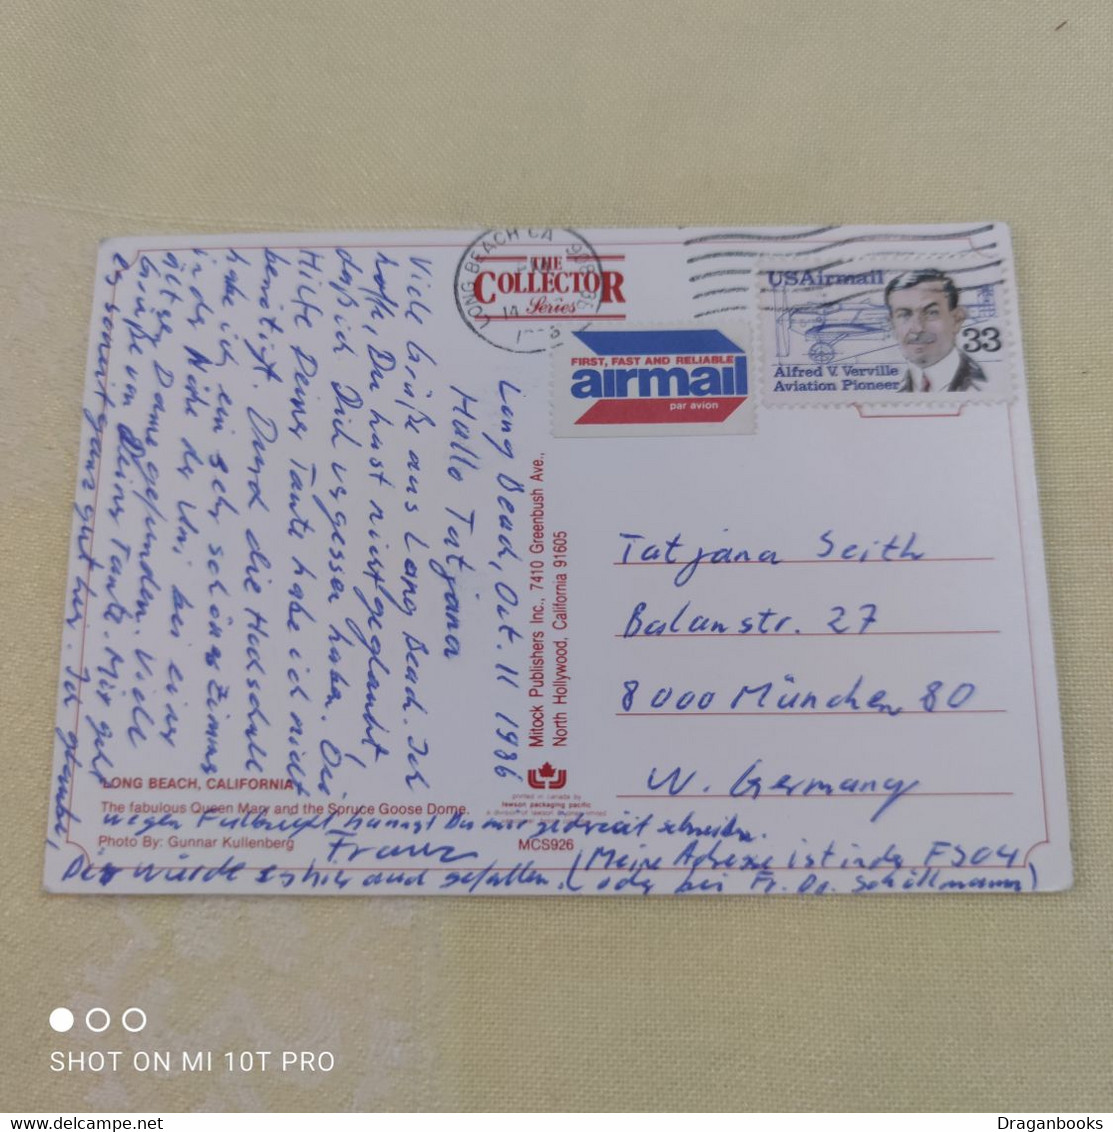 LONG BEACH CA 908
THE
COLLECTOR
Series
FIRST, FAST AND RELIABLE
airmail
par avion
USAirmail
33
Alfred V. Verville
Aviation Pioneer
Long Beach, Oct. 11 1986
Hallo Tatjana
Viele Grüße aus Long Beach. Ich
hoffe, Du hast nicht gedacht,
daß ich Dich vergessen habe. Die
Hilfe Deiner Tante habe ich nicht
benötigt. Durch die Hochschule
habe ich ein sehr schönes Zimmer
in der Nähe der Uni bei einer
gefunden. Viele
Grüße von Deiner Tante. Mir geht
es soweit ganz gut hier. Ich glaube,
Dir würde es hier auch gefallen.
wegen Fulbright kannst Du mir jederzeit schreiben.
Franz
(Meine Adresse ist in der FS04
oder bei Fr. Dr. Schöllmann)
Mitock Publishers Inc., 7410 Greenbush Ave.,
North Hollywood, California 91605
Tatjana Seith
Balanstr. 27
8000 München 80
W. Germany
LONG BEACH, CALIFORNIA
The fabulous Queen Mary and the Spruce Goose Dome.
Photo By: Gunnar Kullenberg
printed in canada by
lawson packaging pacific
MCS926
SHOT ON MI 10T PRO
Draganbooks